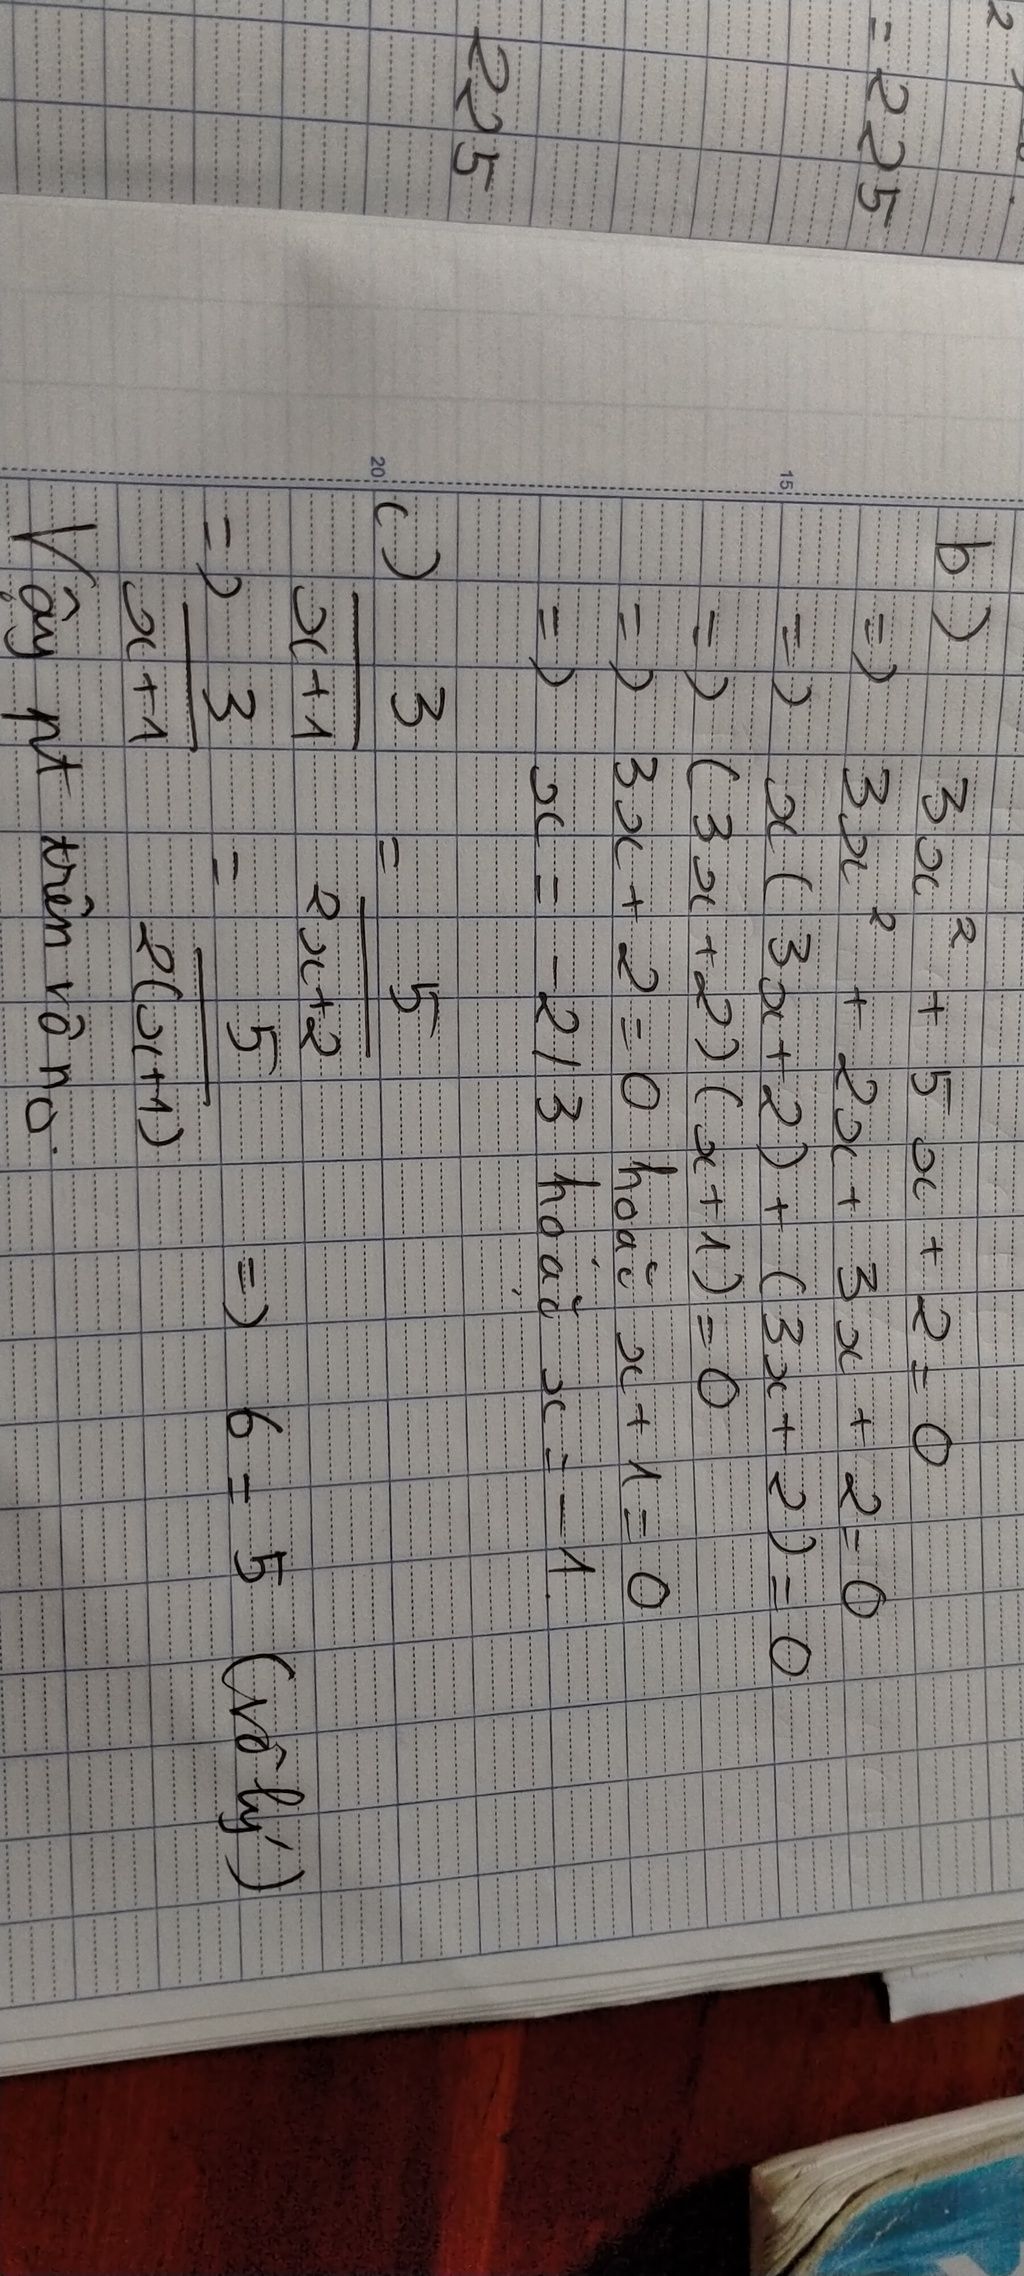 2
= 225
225
15
20
b) 3x² + 5x + 2 = 0
=) 3x² + 2x + 3x + 2 = 0
=) x(3x+2) + (3x+2) = 0
=) (3x+2)(x+1) = 0
=) 3x + 2 = 0 hoặc x + 1 = 0
=) x = -2/3 hoặc x = -1
c) 3/(x+1) = 5/(2x+2)
=) 3/(x+1) = 5/(2(x+1)) =) 6 = 5 (vô lý)
Vậy pt trên vô no.